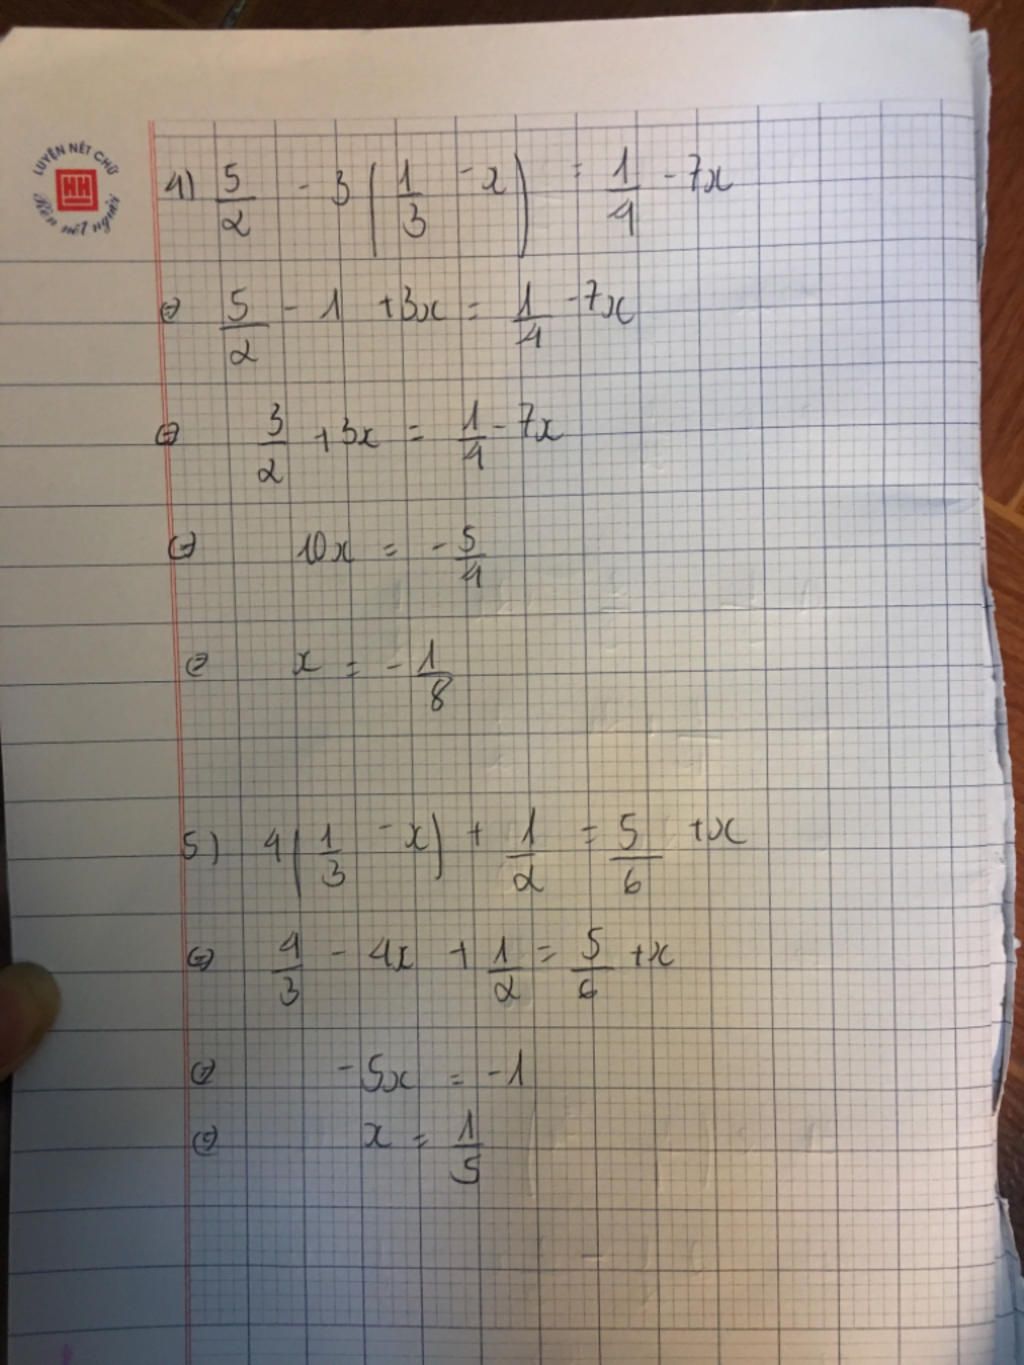 LUYỆN NÉT CHỮ
HH
Rèn nết người
4) 5/2 - 3(1/3 - x) = 1/4 - 7x
⇔ 5/2 - 1 + 3x = 1/4 - 7x
⇔ 3/2 + 3x = 1/4 - 7x
⇔ 10x = -5/4
⇔ x = -1/8
5) 4(1/3 - x) + 1/2 = 5/6 + x
⇔ 4/3 - 4x + 1/2 = 5/6 + x
⇔ -5x = -1
⇔ x = 1/5